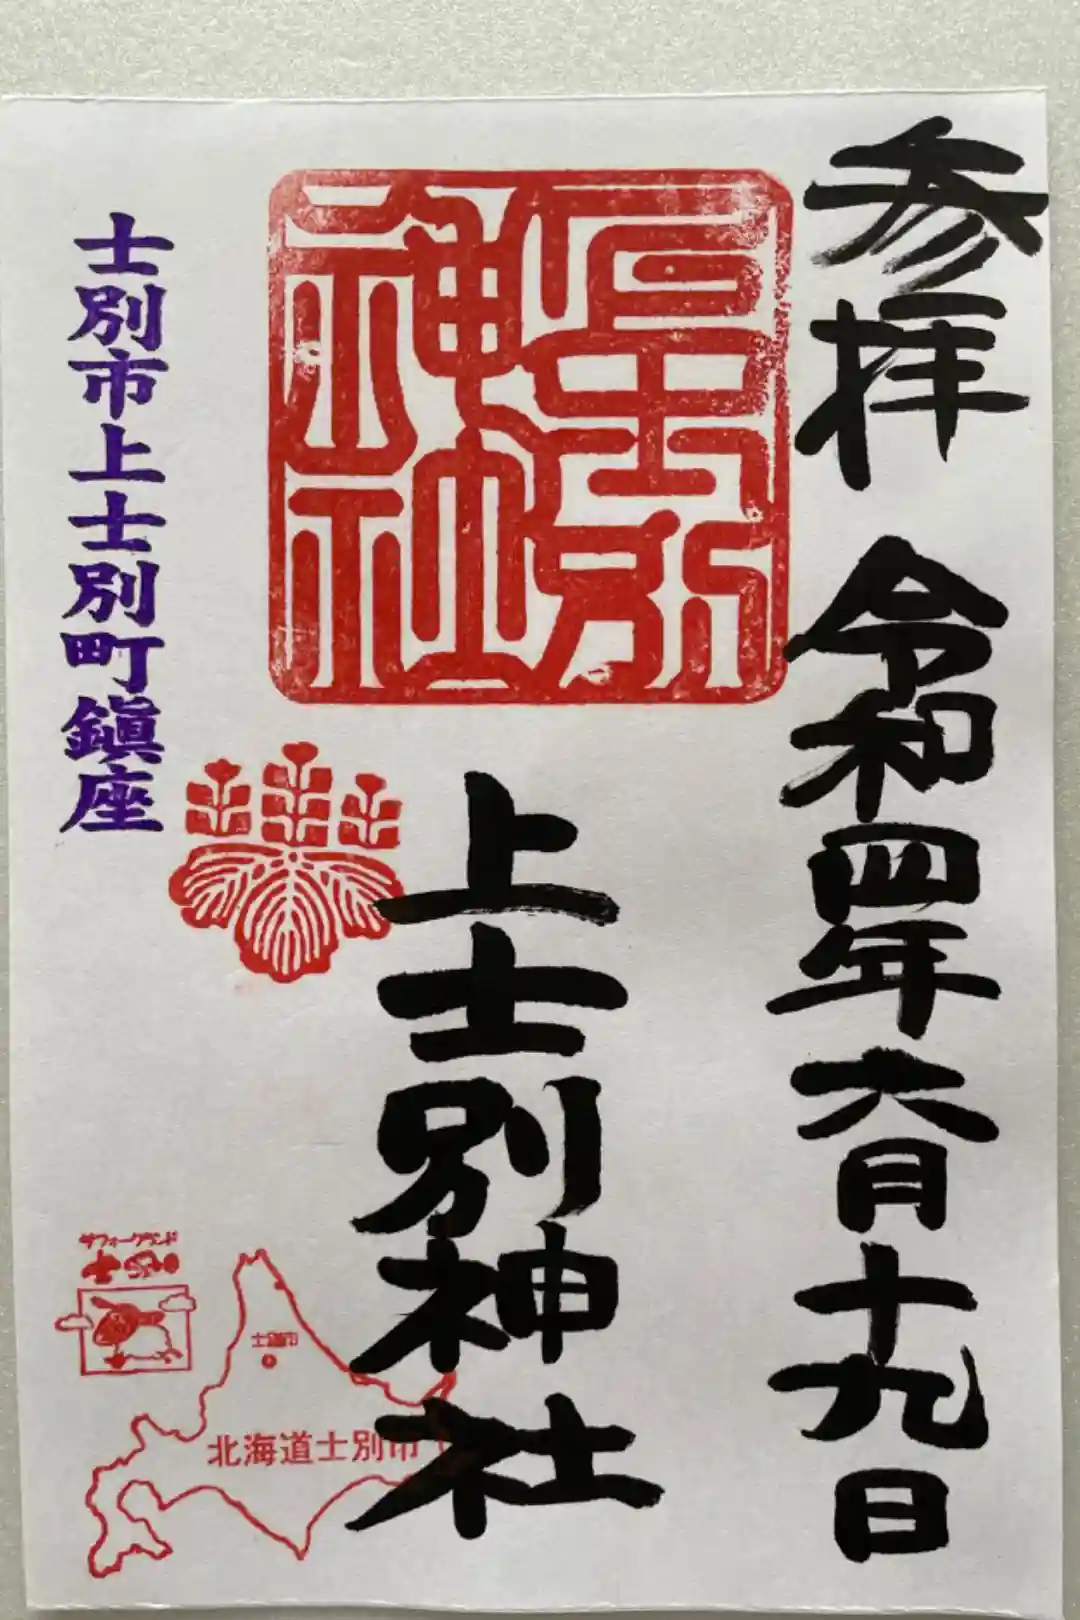 参拝 令和四年六月十九日
上士別神社
士別市上士別町鎮座
サフォークランド
士別
士別市
北海道士別市